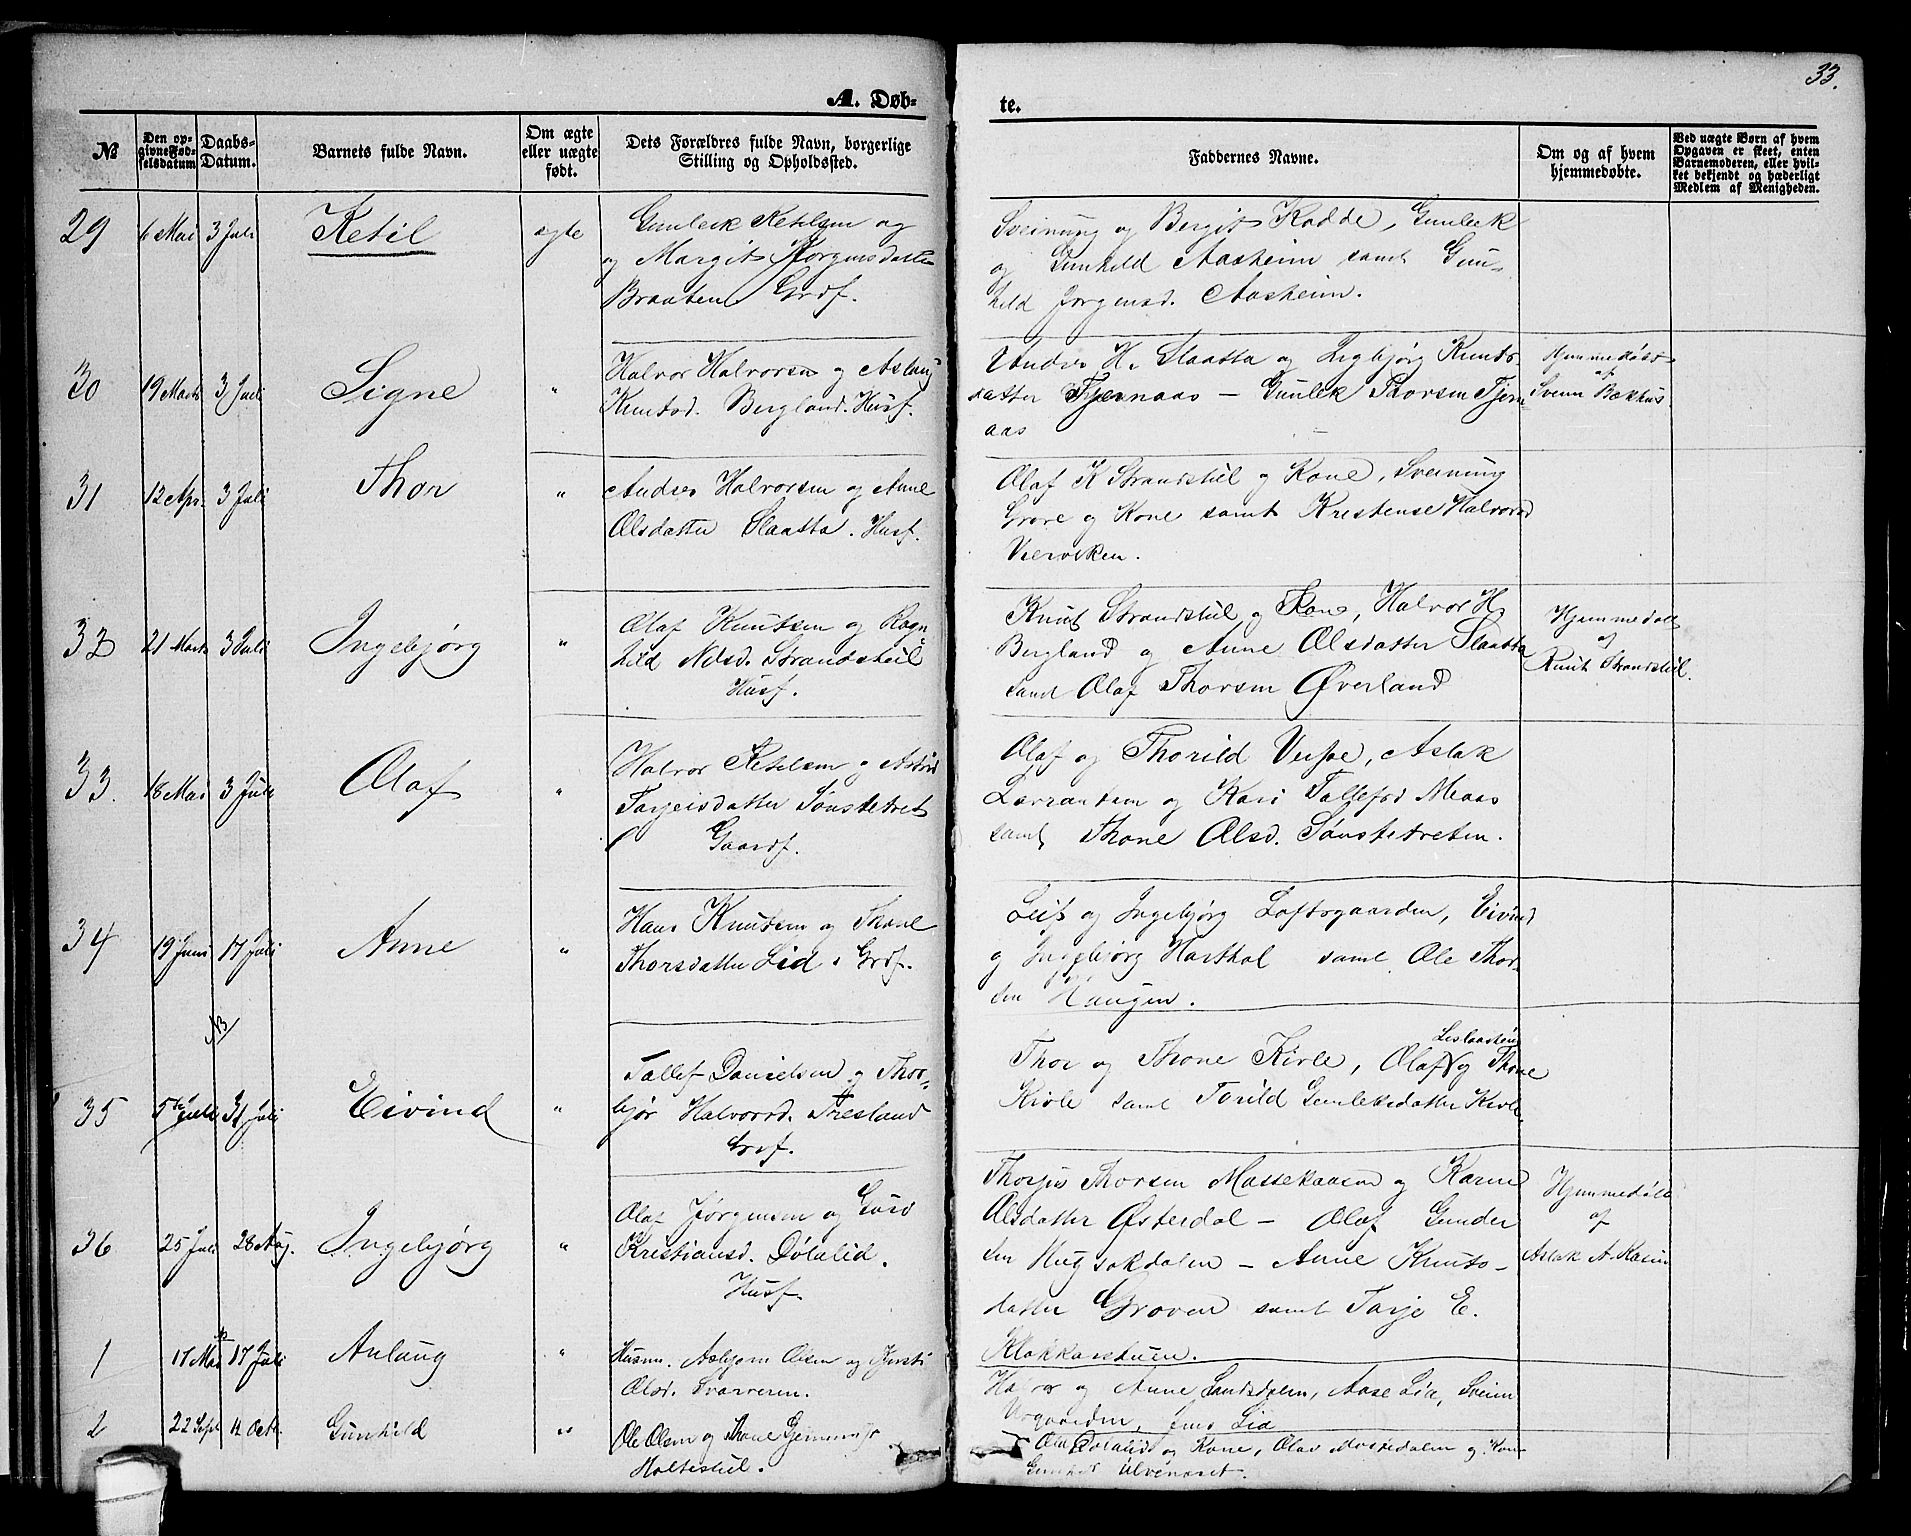 33.
A. Døb-
te.
№
Den op-
givne Fød-
selsdatum
Daabs-
Datum.
Barnets fulde Navn.
Om ægte
eller uægte
født.
Dets Forældres fulde Navn, borgerlige
Stilling og Opholdssted.
Faddernes Navne.
Om og af hvem
hjemmedøbte.
Ved uægte Børn af hvem
Opgaven er skeet, enten
Barnemoderen, eller hvil-
ket bekjendt og hæderligt
Medlem af Menigheden.
29 6 Mai 3 Juli Ketil ægte
Gunleik Ketilsen og
og Margit Jørgensdatter
Braaten. Grdf.
Sveinung og Bergit Kodde, Gunleik
og Gunhild Aasheim samt Gun-
hild Jørgensd. Aasheim.
30 19 Marts 3 Juli Signe "
Halvor Halvorsen og Aslaug
Knutsd. Bergland. Husf.
Andres H. Slaatta og Ingbjørg Knuts-
datter Tjernaas — Gunlek Thorsen Tjern
aas
Hjemmedøbt
af
Svenn Bækhus
31 12 Apr. 3 Juli Thor "
Andres Halvorsen og Anne
Olsdatter Slaatta. Husf.
Olaf K Strandstul og Kone, Sveinung
Grave og Kone samt Kristense Halvorsd
Vierviken.
32 21 Marts 3 Juli Ingebjørg "
Olaf Knutsen og Ragn
hild Nilsd. Strandstul
Husf.
Knut Strandstul og Kone, Halvor H.
Bergland og Anne Olsdatter Slaatta
samt Olaf Thorsen Øverland
Hjemmedøbt
af
Knut Strandstul.
33. 18 Mai 3 Juli Olaf "
Halvor Ketilsen og Astrid
Tarjeisdatter Sønstetveit
Gaardf.
Olaf og Thorild Veise, Aslak
Lavrantsen og Kari Tallefsd Meaas
samt Thone Olsd. Sønstetveiten.
34 19 Juni 17 Juli Anne "
Hans Knutsen og Thone
Thorsdatter Lid. Grdf.
Leif og Ingebjørg Loftsgaarden, Eivind
og Ingebjørg Harthol samt Ole Thor-
sen Haugen.
NB
35 5te Juli 31 Juli Eivind "
Tallef Danielsen og Thor-
bjør Halvorsd. Tresland
Grdf.
Leslaasten
Thor og Thone Kivle, Olaf og Thone
Kivle samt Torild Gunleksdatter Kivle.
36 25 Juli 28 Aug. Ingebjørg "
Olaf Jørgensen og Guro
Kristiansd. Dølalid.
Husf.
Thorjus Thorsen Massekaasen og Karine
Olsdatter Østerdal — Olaf Gunder
sen Hugsakdalen — Anne Knuts-
datter Groven samt Tarje E.
Klokkarstuen.
Hjemmedøbt
af
Aslak A. Kasin
1 17 Mai 17 Juli Anlaug "
Husm. Asbjørn Olsen og Kirsti
Olsd. Svarveren.
Halvor og Anne Sandsdalen, Aase Lia, Svein
Urgaarden, Jens Lia
2 22 Sept 4 Octb. Gunhild "
Ole Olsen og Thone
Holtestul.
Ola Dølalid og Kone, Olav Mossedalen og Kone
Gunhild Ulvenæset.